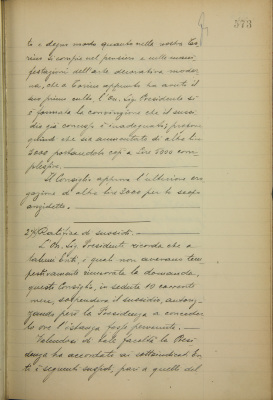 573
to e degno modo quanto nella nostra To-
rino si compie nel pensiero e nelle mani-
festazioni dell'arte decorativa moder-
na, che a Torino appunto ha avuto il
suo primo culto, l'On. Sig. Presidente si
è formata la convinzione che il sussi-
dio già concesso è inadeguato; propone
quindi che sia aumentato di altre lire
2000 portandolo così a Lire 5000 com-
plessive.
Il Consiglio approva l'ulteriore ero-
gazione di altre lire 2000 per lo scopo
anzidetto.
24) Ratifica di sussidi.
L'On. Sig. Presidente ricorda che a
taluni Enti, i quali non avevano tem-
pestivamente rinnovata la domanda,
questo Consiglio, in seduta 10 corrente
mese, sospendeva il sussidio, autoriz-
zando però la Presidenza a conceder-
lo ove l'istanza fosse pervenuta.
Valendosi di tale facoltà la Presi-
denza ha accordato ai sottoindicati En-
ti i seguenti sussidi, pari a quelli del